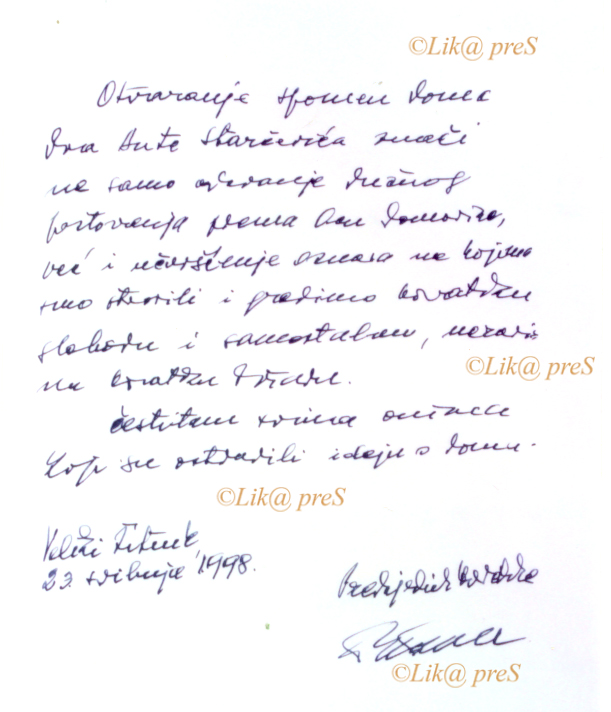 ©Lik@ preS
Otvaranje spomen doma
dra Ante Starčevića znači
ne samo odavanje dužnog
poštovanja prema Ocu Domovine,
već i učvršćenje osnova na kojima
smo stvorili i gradimo hrvatsku
slobodu i samostalnu,
©Lik@ preS
na hrvatsku državu.
Čestitam svima onima
koji su ostvarili ideju o domu.
©Lik@ preS
Veliki Žitnik
23. svibnja 1998.
Predsjednik Hrvatske
©Lik@ preS